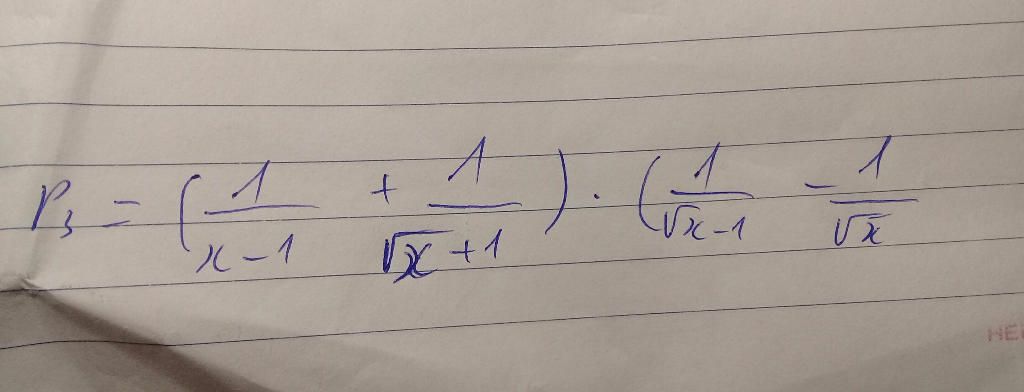 P₃ = (1/(x-1) + 1/(√x+1)) · (1/(√x-1) - 1/√x